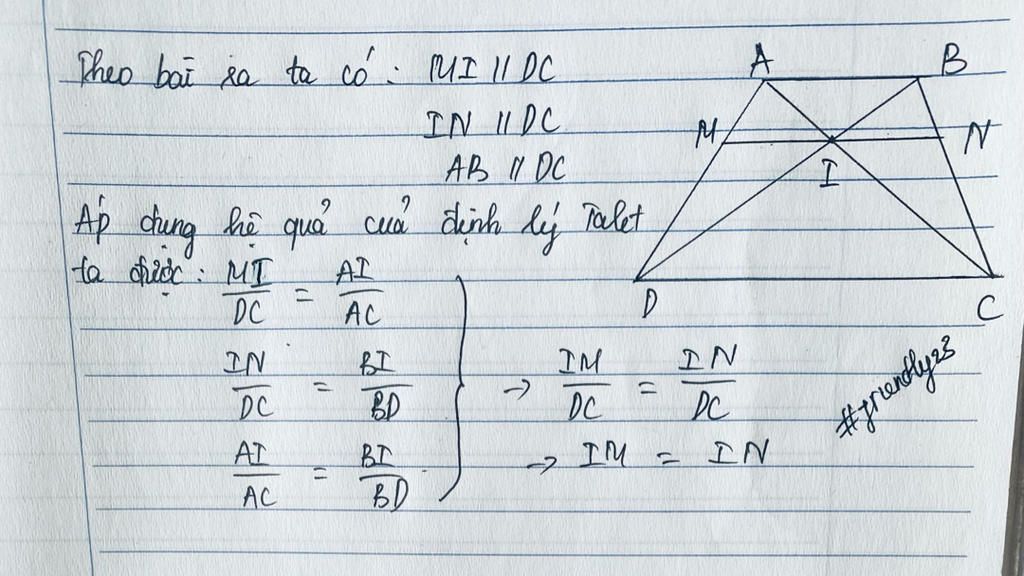 Theo bài ra ta có: MI // DC
IN // DC
AB // DC
Áp dụng hệ quả của định lý Talet
ta được: MI/DC = AI/AC
IN/DC = BI/BD
AI/AC = BI/BD
→ IM/DC = IN/DC
→ IM = IN
A B
M N
I
D C
#friendly23